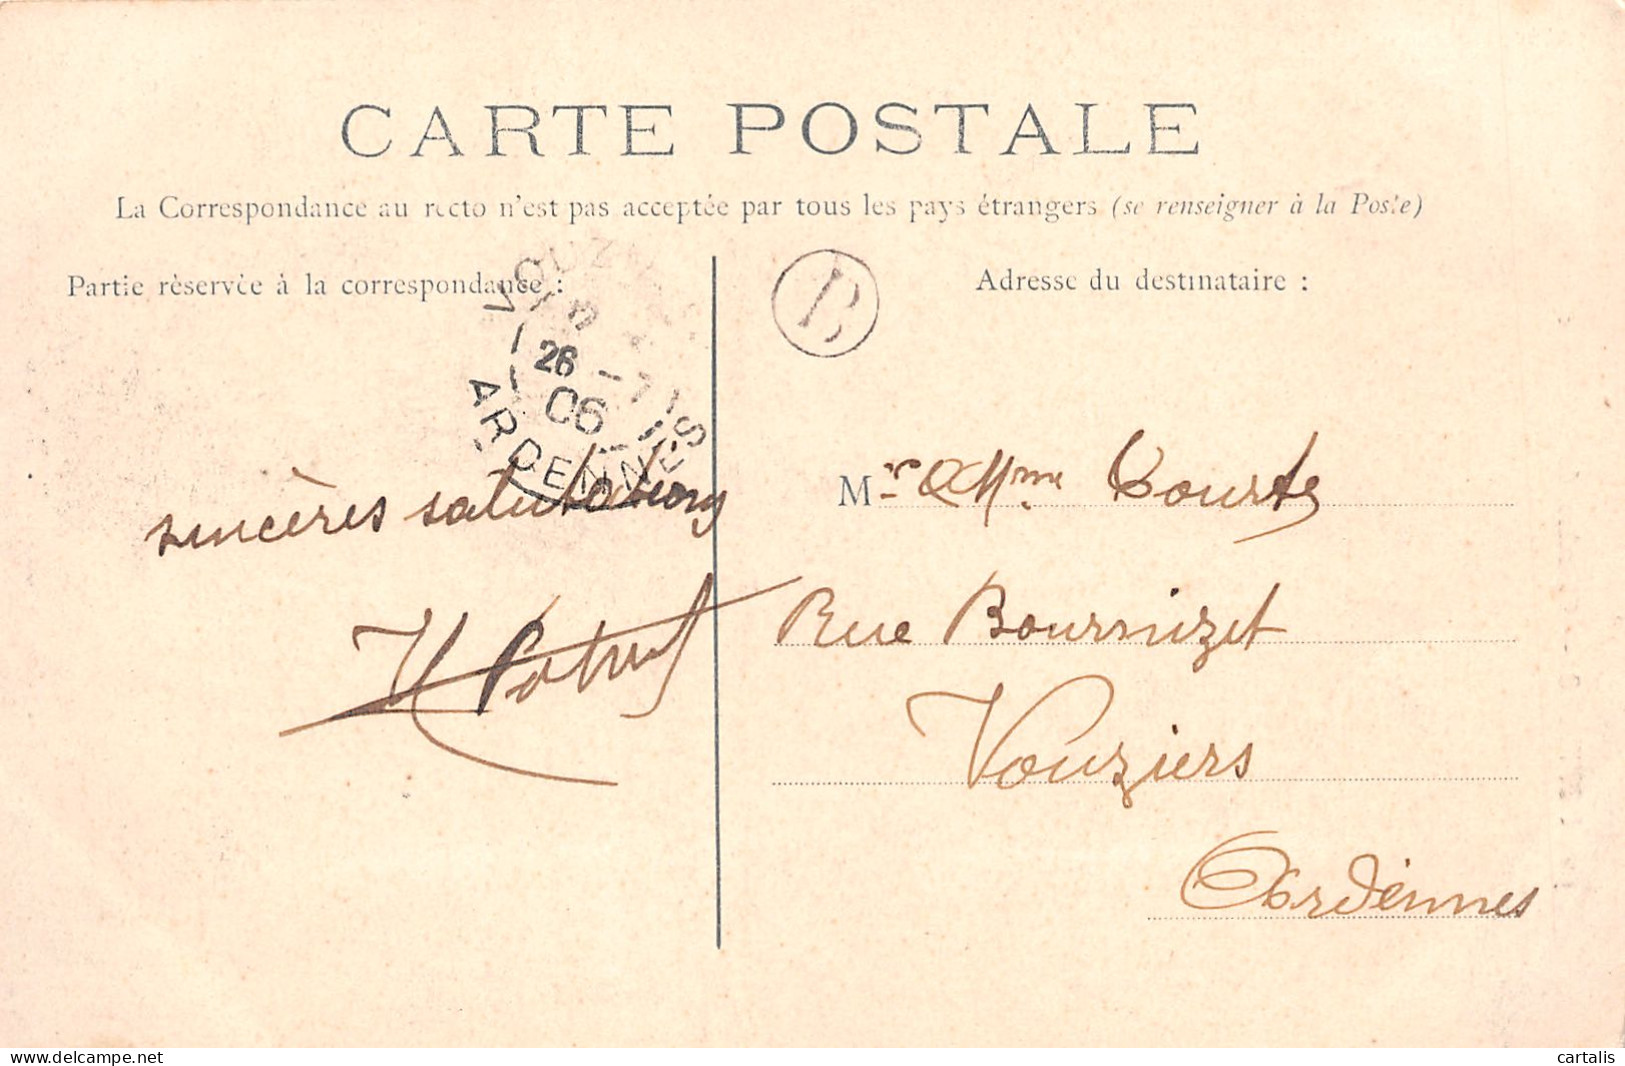 CARTE POSTALE
La Correspondance au recto n'est pas acceptée par tous les pays étrangers (se renseigner à la Poste)
Partie réservée à la correspondance :
Adresse du destinataire :
VOUZ
26
06
ARDENNES
B
sincères salutations
Mr & Mme Courte
Rue Bournizet
Vouziers
Ardennes
www.delcampe.net
cartalis